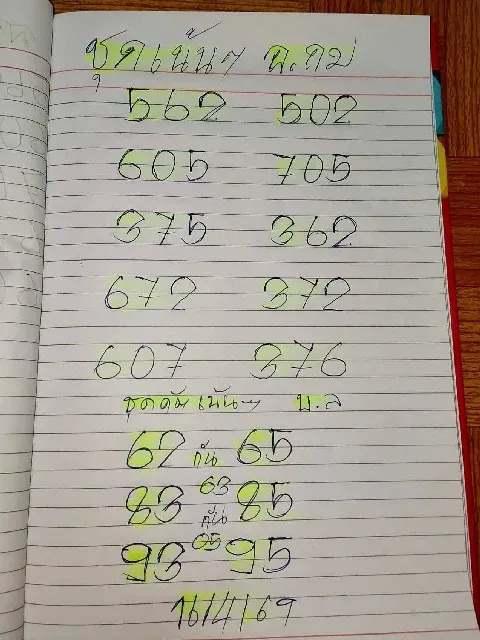 ชุดเน้นๆ
562 502
605 705
375 362
672 372
607 376
ชุดดัมเน้นๆ บ.ล
62 กัน 65
83 63 กัน 85
93 05 95
16/4/69